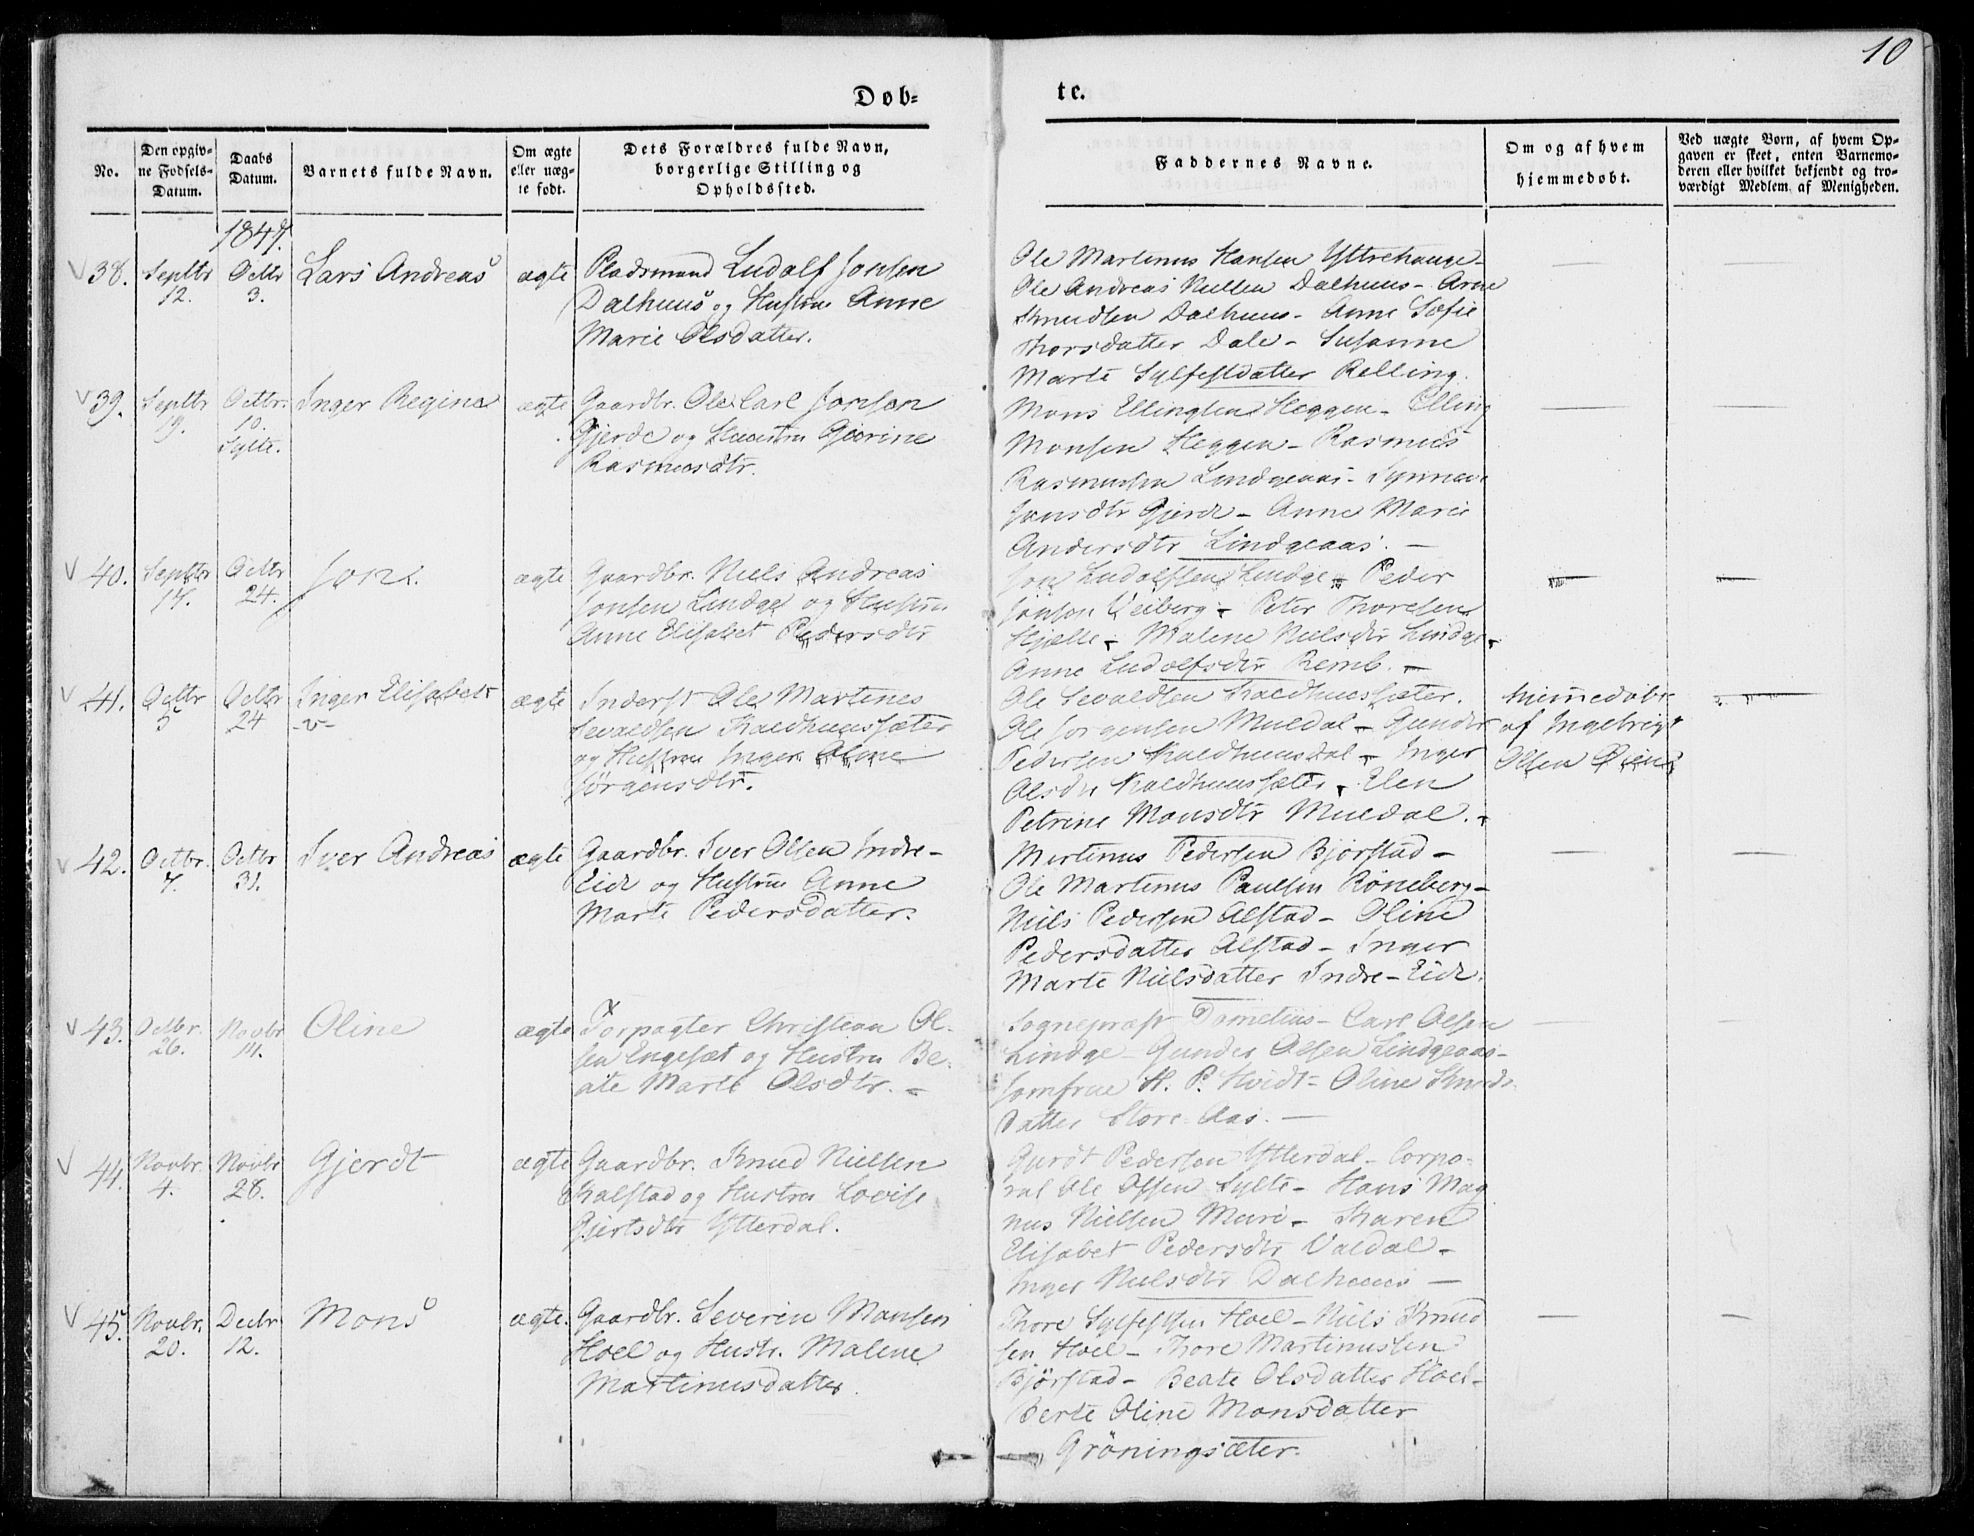 10
Døb=
te.
No.
Den opgiv=
ne Fødsels=
Datum.
Daabs
Datum.
Barnets fulde Navn.
Om ægte
eller uæg=
te født.
Dets Forældres fulde Navn,
borgerlige Stilling og
Opholdssted.
Faddernes Navne.
Om og af hvem
hjemmedøbt.
Ved uægte Børn, af hvem Op=
gaven er skeet, enten Barnemo=
deren eller hvilket bekjendt og tro=
værdigt Medlem af Menigheden.
1847.
38.
Septbr
12.
Octbr
3.
Lars Andreas
ægte
Pladsmand Ludolf Jonsen
Dalhuus og Hustru Anne
Marie Olsdatter.
Ole Martinus Hansen Yttrehauge-
Ole Andreas Nielsen Dalhuus- Arne
Knudsen Dalhuus- Anne Sofie
Thorsdatter Dale- Susanne
Marte Sylfestdatter Relling.
39.
Septbr
19.
Octbr.
10.
Sylte.
Inger Regine
ægte
Gaardbr. Ole Carl Jonsen
Gjerde og Huustru Gjørine
Rasmusdtr.
Mons Ellingsen Heggen- Elling
Monsen Heggen- Rasmus
Rasmussen Lindgeaas- Synneve
Jonsdtr Gjerde- Anne Marie
Andersdtr Lindgeaas. -
40.
Septbr
17.
Octbr
24.
Jon.
ægte
Gaardbr. Niels Andreas
Jonsen Lindge og Hustru
Anne Elisabet Pedersdtr
Jon Ludolfsen Lindge- Peder
Jonsen Veiberg- Peter Thoresen
Hjelle- Malene Nielsdtr Lindge-
Anne Ludolfsdtr Remb. -
41.
Octbr
5
Octbr
24
Inger Elisabet
-v-
ægte
Inderst Ole Martines
Sevaldsen Kaldhuussæter
og Hustru Inger Oline
Jørgensdtr.
Ole Sevaldsen Kaldhuussæter.
Ole Jørgensen Muldal- Gunder
Pedersen Kaldhuusdal- Inger
Olsdtr Kaldhuussæter- Elen
Petrine Monsdtr Muldal. -
hiemedøbt
af Ingebrigt
Olsen Øien
42.
Octbr.
7.
Octbr
31.
Iver Andreas
ægte
Gaardbr. Iver Olsen Indre-
Eide og Hustru Anne
Marte Pedersdatter.
Martinus Pedersen Bjørstad-
Ole Martinus Paulsen Røneberg-
Niels Pedersen Alstad- Oline
Pedersdatter Alstad- Inger
Marte Nielsdatter Indre-Eide.
43.
Octbr.
26.
Novbr
14.
Oline
ægte
Forpagter Christian Ol-
sen Engeset og Hustru Be-
ate Marte Olsdtr. -
Sognepræst Tometius- Carl Olsen
Lindge- Gunder Olsen Lindgeaas-
Jomfrue H. P. Hvidt- Oline Knuds-
datter Store-Aas. -
44.
Novbr.
4.
Novbr
28.
Gjerdt
ægte
Gaardbr. Knud Nielsen
Kalstad og Hustru Lovise
Gjertsdtr Ytterdal.
Gurdt Pedersen Ytterdal- Corpo-
ral Ole Olsen Sylte- Hans Mag
nus Nielsen Muri- Karen
Elisabet Pedersdtr Valdal-
Inger Nielsdtr Dalhuus -
45.
Novbr.
20.
Decbr
12.
Mons
ægte.
Gaardbr. Severin Monsen
Hoel og Hustr. Malene
Martinusdatter.
Thore Sylfestsen Hoel- Niels Knud
sen Hoel- Thore Martinussen
Bjørstad- Beate Olsdatter Hoel-
Berte Oline Monsdatter
Grøningsæter.